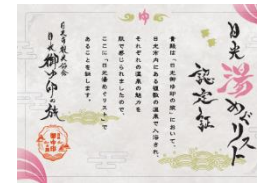 日光湯めぐリスト
認定証
貴殿は「日光御湯印の旅」において、
日光市内にある複数の温泉で入浴され、
それぞれの温泉の魅力を
肌で感じられましたので、
ここに「日光湯めぐリスト」で
あることを証します。
日光市観光協会
日光御湯印の旅